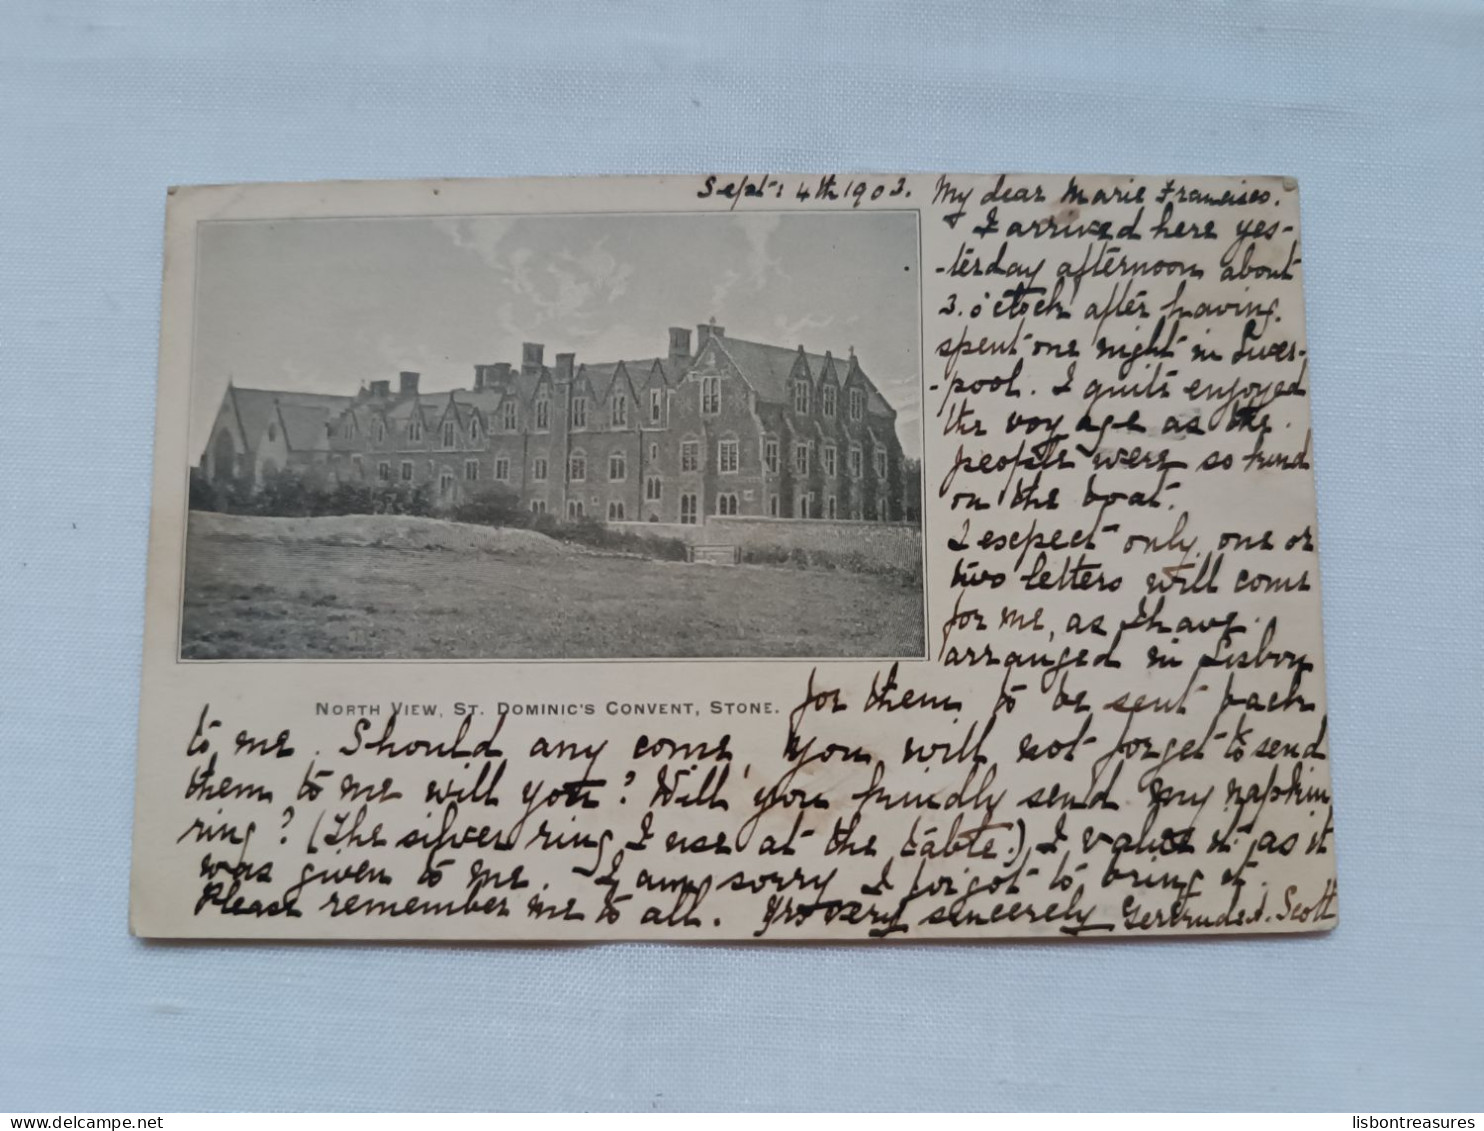 Sept: 4th 1903. My dear Marie Francisco.
I arrived here yes-
-terday afternoon about
3. o'clock after having
spent one night in Liver-
-pool. I quite enjoyed
the voyage as the
people were so kind
on the boat.
I expect only one or
two letters will come
for me, as I have
arranged in Lisbon
for them to be sent back
NORTH VIEW, ST. DOMINIC'S CONVENT, STONE.
to me. Should any come, you will not forget to send
them to me will you? Will you kindly send my napkin
ring? (The silver ring I use at the table.) I value it as it
was given to me. I am sorry I forgot to bring it.
Please remember me to all. Yrs very sincerely Gertrude A. Scott
delcampe.net
lisbontreasures